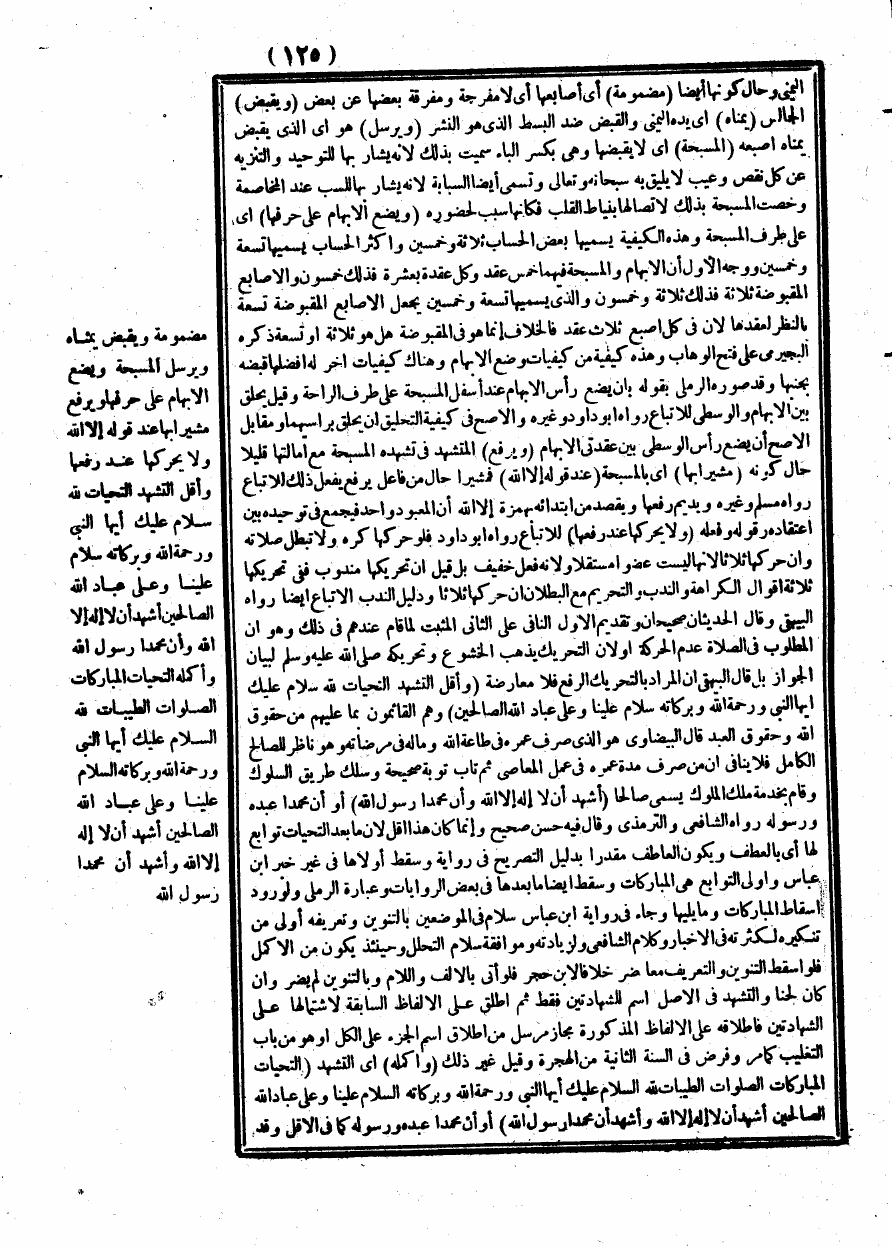 (١٢٥)
اليمنى وحال كونها أيضا (مضمومة) أى أصابعها أى لا مفرجة ومفرقة بعضها عن بعض (ويقبض)
الجالس (يمناه) اى يده اليمنى والقبض ضد البسط الذى هو النشر (ويرسل) هو اى الذى يقبض
يمناه اصبعه (المسبحة) اى لا يقبضها وهى بكسر الباء سميت بذلك لانه يشار بها للتوحيد والتنزيه
عن كل نقص وعيب لا يليق به سبحانه وتعالى وتسمى أيضا السبابة لانه يشار بها للسب عند المخاصمة
وخصت المسبحة بذلك لاتصالها بنياط القلب فكانها سبب لحضوره (ويضع الابهام على حرفها) اى
على طرف المسبحة وهذه الكيفية يسميها بعض الحساب ثلاثة وخمسين واكثر الحساب يسميها تسعة
وخمسين ووجه الأول أن الابهام والمسبحة فيهما خمس عقد وكل عقدة بعشرة فذلك خمسون والاصابع
المقبوضة ثلاثة فذلك ثلاثة وخمسون والذى يسميها تسعة وخمسين يجعل الاصابع المقبوضة تسعة
بالنظر لعقدها لان فى كل اصبع ثلاث عقد فالخلاف إنما هو فى المقبوضة هل هو ثلاثة او تسعة ذكره
البجيرمى على فتح الوهاب وهذه كيفية من كيفيات وضع الابهام وهناك كيفيات اخر له افضلها قبضه
بجنبها وقد صوره الرملى بقوله بان يضع رأس الابهام عند أسفل المسبحة على طرف الراحة وقيل يحلق
بين الابهام والوسطى للاتباع رواه ابو داود وغيره والاصح فى كيفية التحليق ان يحلق براسيهما ومقابل
الاصح أن يضع رأس الوسطى بين عقدتى الابهام (ويرفع) المتشهد فى تشهده المسبحة مع امالتها قليلا
حال كونه (مشيرا بها) اى بالمسبحة (عند قوله إلا الله) فمشيرا حال من فاعل يرفع يفعل ذلك للاتباع
رواه مسلم وغيره ويديم رفعها ويقصد من ابتدائه بهمزة إلا الله أن المعبود واحد فيجمع فى توحيده بين
اعتقاده وقوله وفعله (ولا يحركها عند رفعها) للاتباع رواه ابو داود فلو حركها كره ولا تبطل صلاته
وان حركها ثلاثا لانها ليست عضوا مستقلا ولانه فعل خفيف بل قيل ان تحريكها مندوب ففى تحريكها
ثلاثة اقوال الكراهة والندب والتحريم مع البطلان ان حركها ثلاثا ودليل الندب الاتباع ايضا رواه
البيهقى وقال الحديثان صحيحان وتقديم الاول النافى على الثانى المثبت لما قام عندهم فى ذلك وهو ان
المطلوب فى الصلاة عدم الحركة اولان التحريك يذهب الخشوع وتحريكه صلى الله عليه وسلم لبيان
الجواز بل قال البيهقى ان المراد بالتحريك الرفع فلا معارضة (وأقل التشهد التحيات لله سلام عليك
ايها النبى ورحمة الله وبركاته سلام علينا وعلى عباد الله الصالحين) وهم القائمون بما عليهم من حقوق
الله وحقوق العبد قال البيضاوى هو الذى صرف عمره فى طاعة الله وماله فى مرضاته وهو ناظر للصالح
الكامل فلا ينافى ان من صرف مدة عمره فى عمل المعاصى ثم تاب توبة صحيحة وسلك طريق السلوك
وقام بخدمة ملك الملوك يسمى صالحا (أشهد أن لا إله إلا الله وأن محمدا رسول الله) أو أن محمدا عبده
ورسوله رواه الشافعى والترمذى وقال فيه حسن صحيح وإنما كان هذا اقل لان ما بعد التحيات توابع
لها أى بالعطف ويكون العاطف مقدرا بدليل التصريح فى رواية وسقط أولاها فى غير خبر ابن
عباس واولى التوابع هى المباركات وسقط ايضا ما بعدها فى بعض الروايات وعبارة الرملى ولورود
اسقاط المباركات وما يليها وجاء فى رواية ابن عباس سلام فى الموضعين بالتنوين وتعريفه أولى من
تنكيره لكثرته فى الاخبار وكلام الشافعى ولزيادته وموافقة سلام التحلل وحينئذ يكون من الاكمل
فلو اسقط التنوين والتعريف معا ضر خلافا لابن حجر فلو أتى بالالف واللام وبالتنوين لم يضر وان
كان لحنا والتشهد فى الاصل اسم للشهادتين فقط ثم اطلق على الالفاظ السابقة لاشتمالها على
الشهادتين فاطلاقه على الالفاظ المذكورة مجاز مرسل من اطلاق اسم الجزء على الكل او هو من باب
التغليب كما مر وفرض فى السنة الثانية من الهجرة وقيل غير ذلك (واكمله) اى التشهد (التحيات
المباركات الصلوات الطيبات لله السلام عليك أيها النبى ورحمة الله وبركاته السلام علينا وعلى عباد الله
الصالحين أشهد أن لا إله إلا الله وأشهد أن محمدا رسول الله) أو أن محمدا عبده ورسوله كما فى الاقل وقد
مضمومة ويقبض يمناه
ويرسل المسبحة ويضع
الابهام على حرفها ويرفع
مشيرا بها عند قوله إلا الله
ولا يحركها عند رفعها
وأقل التشهد التحيات لله
سلام عليك أيها النبى
ورحمة الله وبركاته سلام
علينا وعلى عباد الله
الصالحين أشهد أن لا إله إلا
الله وأن محمدا رسول الله
وأكمله التحيات المباركات
الصلوات الطيبات لله
السلام عليك أيها النبى
ورحمة الله وبركاته السلام
علينا وعلى عباد الله
الصالحين أشهد أن لا إله
إلا الله وأشهد أن محمدا
رسول الله